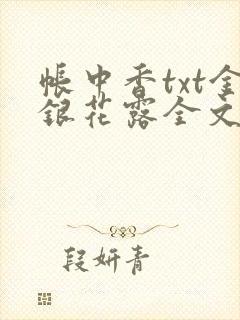 帳中香txt金
銀花露全文
段妍青